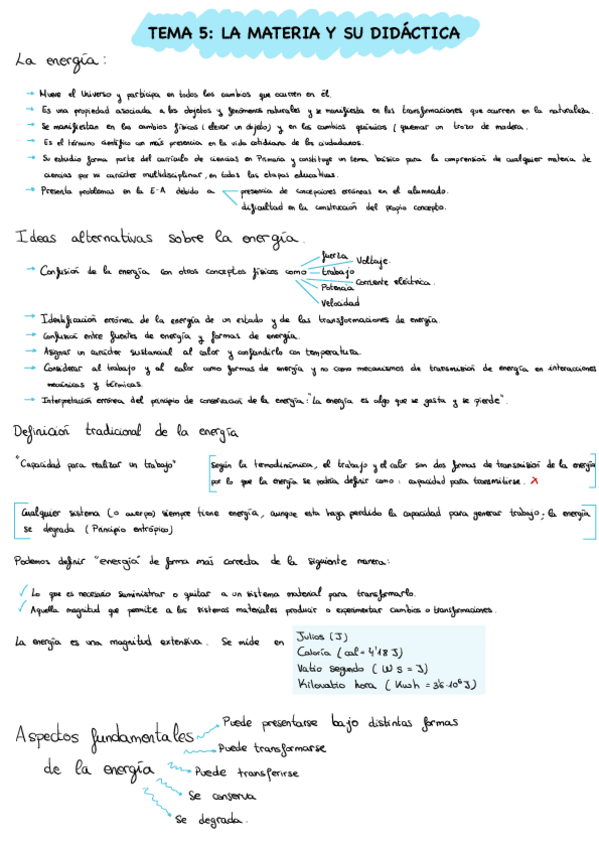 TEMA 5: LA MATERIA Y SU DIDÁCTICA
La energía:
→ Mueve el Universo y participa en todos los cambios que ocurren en él.
→ Es una propiedad asociada a los objetos y fenómenos naturales y se manifiesta en las transformaciones que ocurren en la naturaleza.
→ Se manifiestan en los cambios físicos (elevar un objeto) y en los cambios químicos (quemar un trozo de madera.
→ Es el término científico con más presencia en la vida cotidiana de los ciudadanos.
→ Su estudio forma parte del currículo de ciencias en Primaria y constituye un tema básico para la comprensión de cualquier materia de
ciencias por su carácter multidisciplinar, en todas las etapas educativas.
→ Presenta problemas en la E-A debido a
presencia de concepciones erróneas en el alumnado.
dificultad en la construcción del propio concepto.
Ideas alternativas sobre la energía.
→ Confusión de la energía con otros conceptos físicos como
fuerza
Voltaje.
trabajo
Corriente eléctrica.
Potencia
Velocidad
→ Identificación errónea de la energía de un estado y de las transformaciones de energía.
→ Confusión entre fuentes de energía y formas de energía.
→ Asignar un carácter sustancial al calor y confundirlo con temperatura.
→ Considerar al trabajo y al calor como formas de energía y no como mecanismos de transmisión de energía en interacciones
mecánicas y térmicas.
→ Interpretación errónea del principio de conservación de la energía: "La energía es algo que se gasta y se pierde".
Definición tradicional de la energía
"Capacidad para realizar un trabajo"
Según la termodinámica, el trabajo y el calor son dos formas de transmisión de la energía
por lo que la energía se podría definir como: capacidad para transmitirse. X
Cualquier sistema (o cuerpo) siempre tiene energía, aunque esta haya perdido la capacidad para generar trabajo; la energía
se degrada (Principio entrópico)
Podemos definir "energía" de forma más correcta de la siguiente manera:
✓ Lo que es necesario suministrar o quitar a un sistema material para transformarlo.
✓ Aquella magnitud que permite a los sistemas materiales producir o experimentar cambios o transformaciones.
La energía es una magnitud extensiva. Se mide en
Julios (J)
Caloría (cal = 4'18 J)
Vatio segundo (W s = J)
Kilovatio hora (Kwh = 3'6·10⁶ J)
Aspectos fundamentales
de la energía
Puede presentarse bajo distintas formas
Puede transformarse
Puede transferirse
Se conserva
Se degrada.